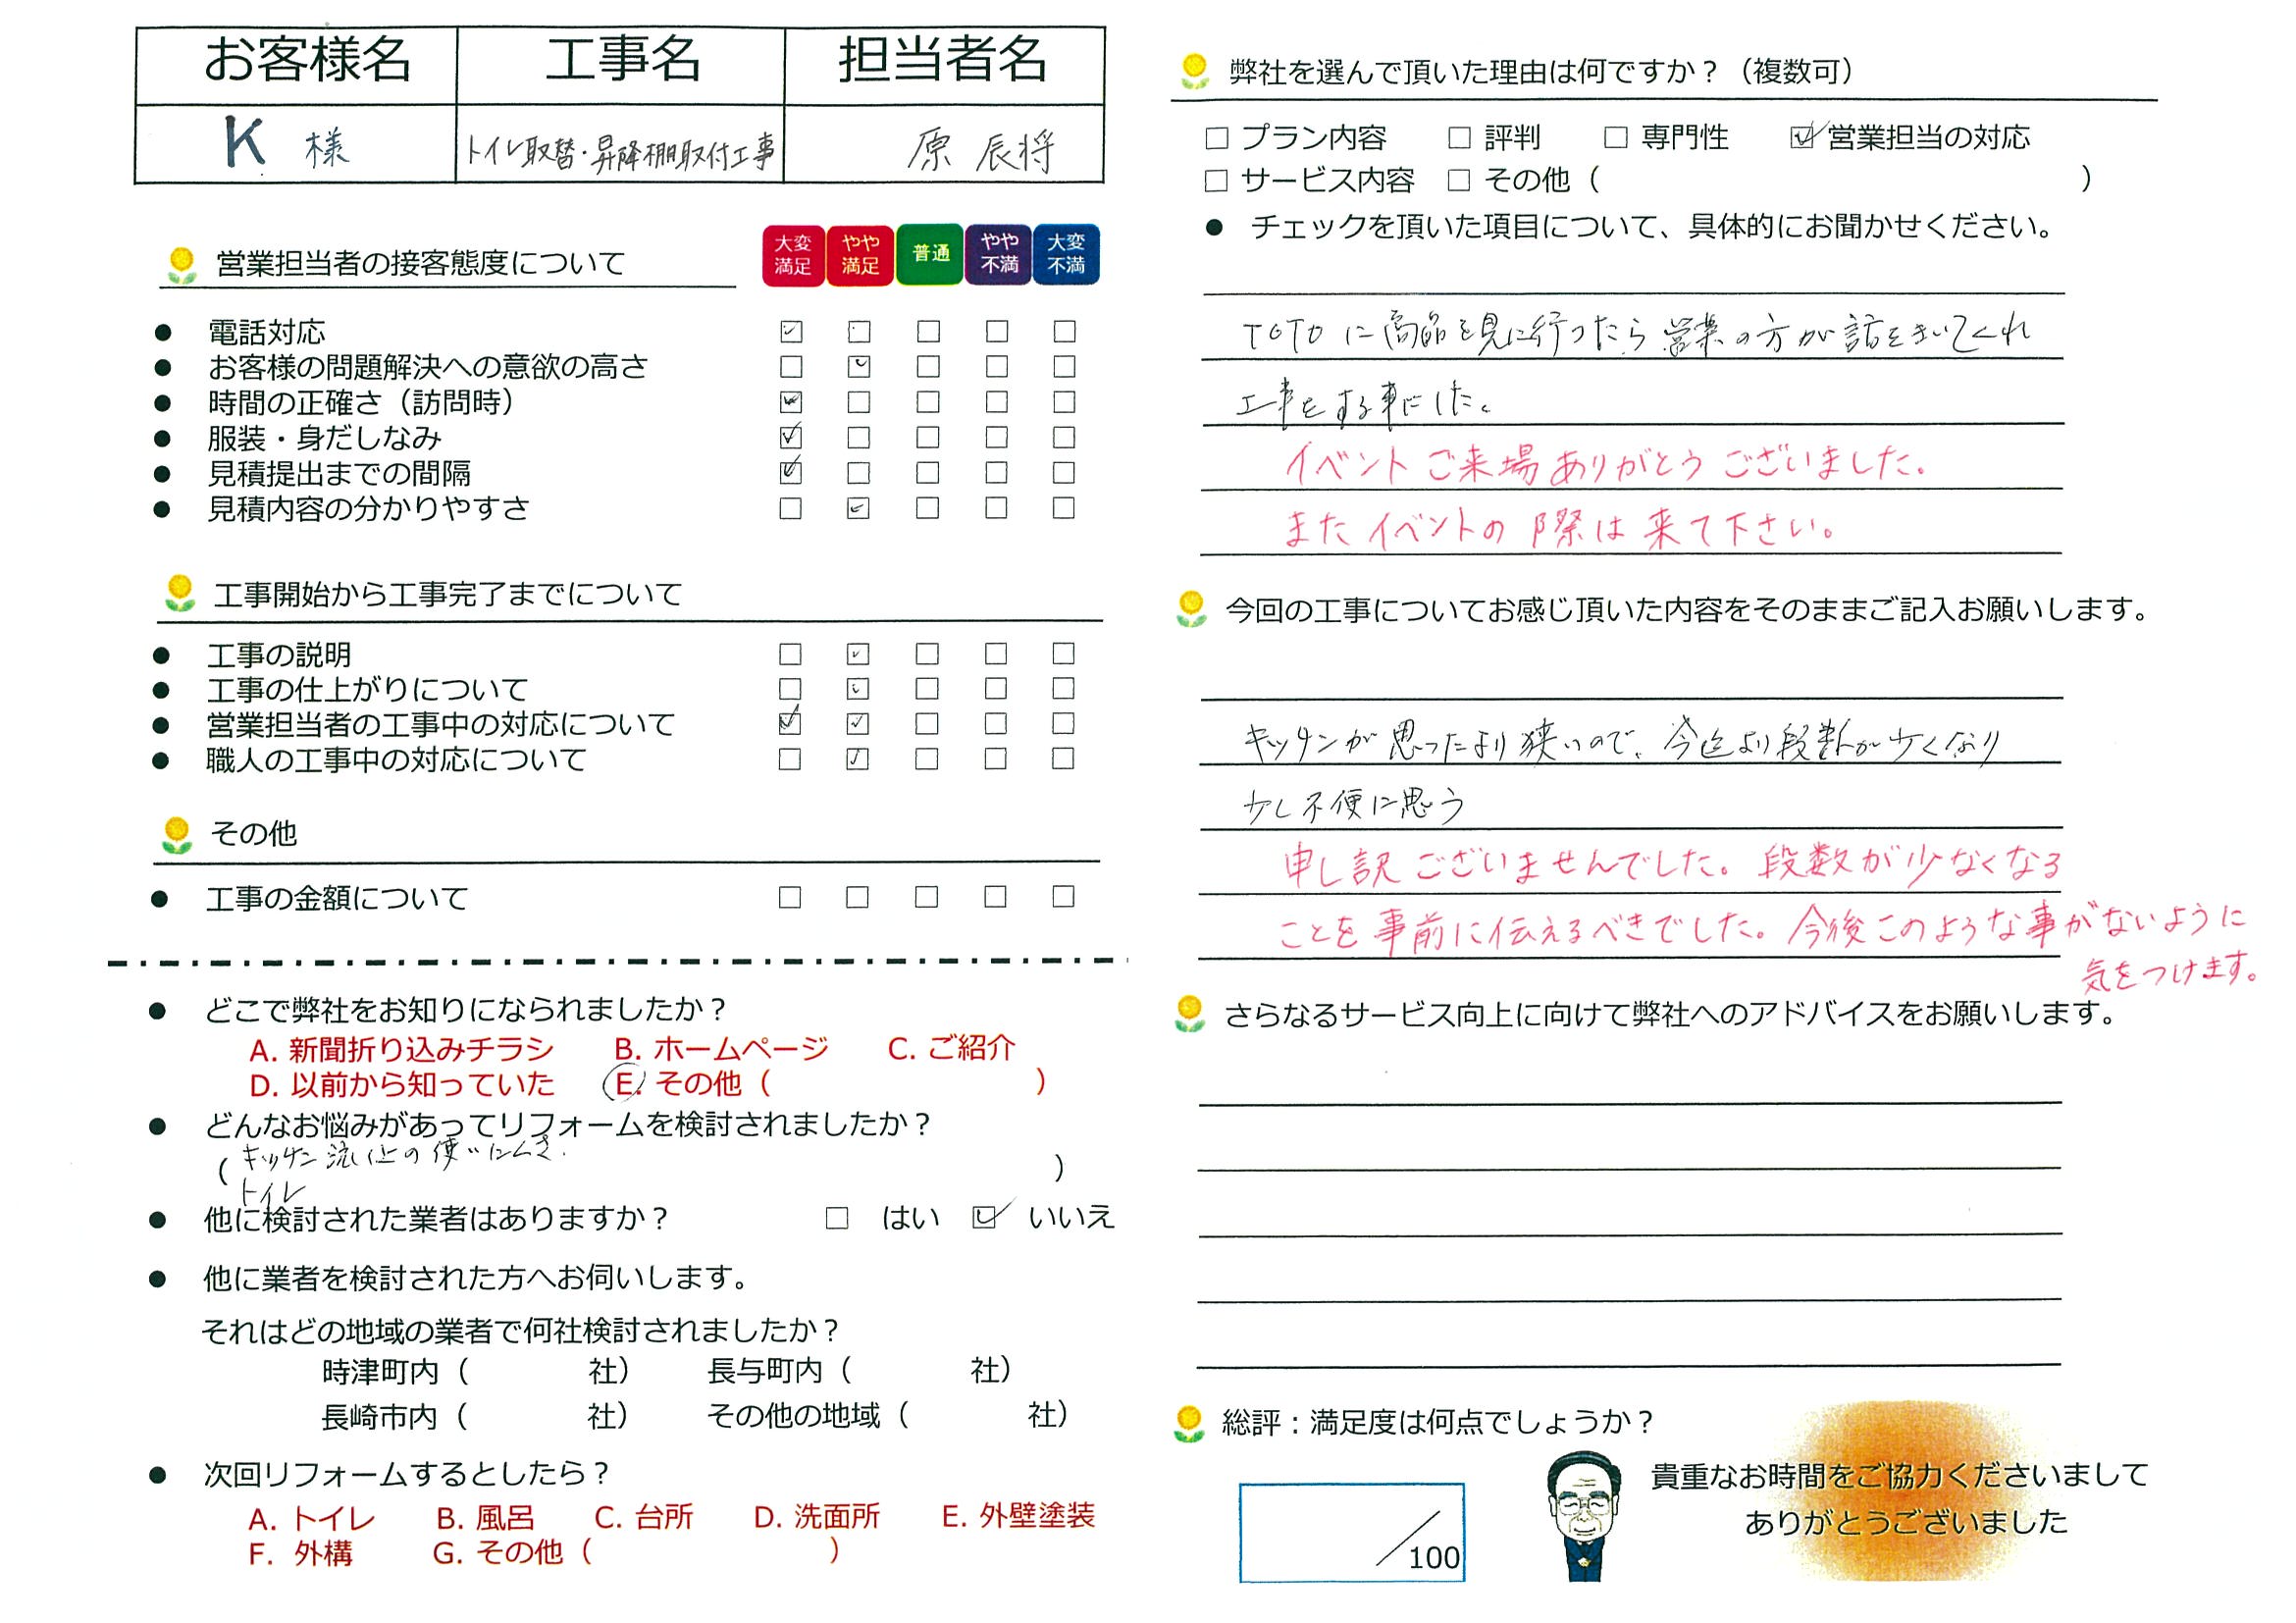 お客様名 工事名 担当者名
K 様 トイレ取替・昇降棚取付工事 原 辰将
営業担当者の接客態度について 大変満足 やや満足 普通 やや不満 大変不満
● 電話対応 ☑ □ □ □ □
● お客様の問題解決への意欲の高さ □ ☑ □ □ □
● 時間の正確さ（訪問時） ☑ □ □ □ □
● 服装・身だしなみ ☑ □ □ □ □
● 見積提出までの間隔 ☑ □ □ □ □
● 見積内容の分かりやすさ □ ☑ □ □ □
工事開始から工事完了までについて
● 工事の説明 □ ☑ □ □ □
● 工事の仕上がりについて □ ☑ □ □ □
● 営業担当者の工事中の対応について ☑ ☑ □ □ □
● 職人の工事中の対応について □ ☑ □ □ □
その他
● 工事の金額について □ □ □ □ □
● どこで弊社をお知りになられましたか？
A. 新聞折り込みチラシ B. ホームページ C. ご紹介
D. 以前から知っていた E. その他（ ）
● どんなお悩みがあってリフォームを検討されましたか？
（ キッチン 流し上の使いにくさ. ）
トイレ
● 他に検討された業者はありますか？ □ はい ☑ いいえ
● 他に業者を検討された方へお伺いします。
それはどの地域の業者で何社検討されましたか？
時津町内（ 社） 長与町内（ 社）
長崎市内（ 社） その他の地域（ 社）
● 次回リフォームするとしたら？
A. トイレ B. 風呂 C. 台所 D. 洗面所 E. 外壁塗装
F. 外構 G. その他（ ）
弊社を選んで頂いた理由は何ですか？（複数可）
□ プラン内容 □ 評判 □ 専門性 ☑ 営業担当の対応
□ サービス内容 □ その他（ ）
● チェックを頂いた項目について、具体的にお聞かせください。
TOTOに商品を見に行ったら営業の方が話をきいてくれ
工事をする事にした。
イベントご来場ありがとうございました。
またイベントの際は来て下さい。
今回の工事についてお感じ頂いた内容をそのままご記入お願いします。
キッチンが思ったより狭いので、今迄より段数が少くなり
少し不便に思う
申し訳ございませんでした。段数が少なくなる
ことを事前に伝えるべきでした。今後このような事がないように
気をつけます。
さらなるサービス向上に向けて弊社へのアドバイスをお願いします。
総評：満足度は何点でしょうか？
／100
貴重なお時間をご協力くださいまして
ありがとうございました